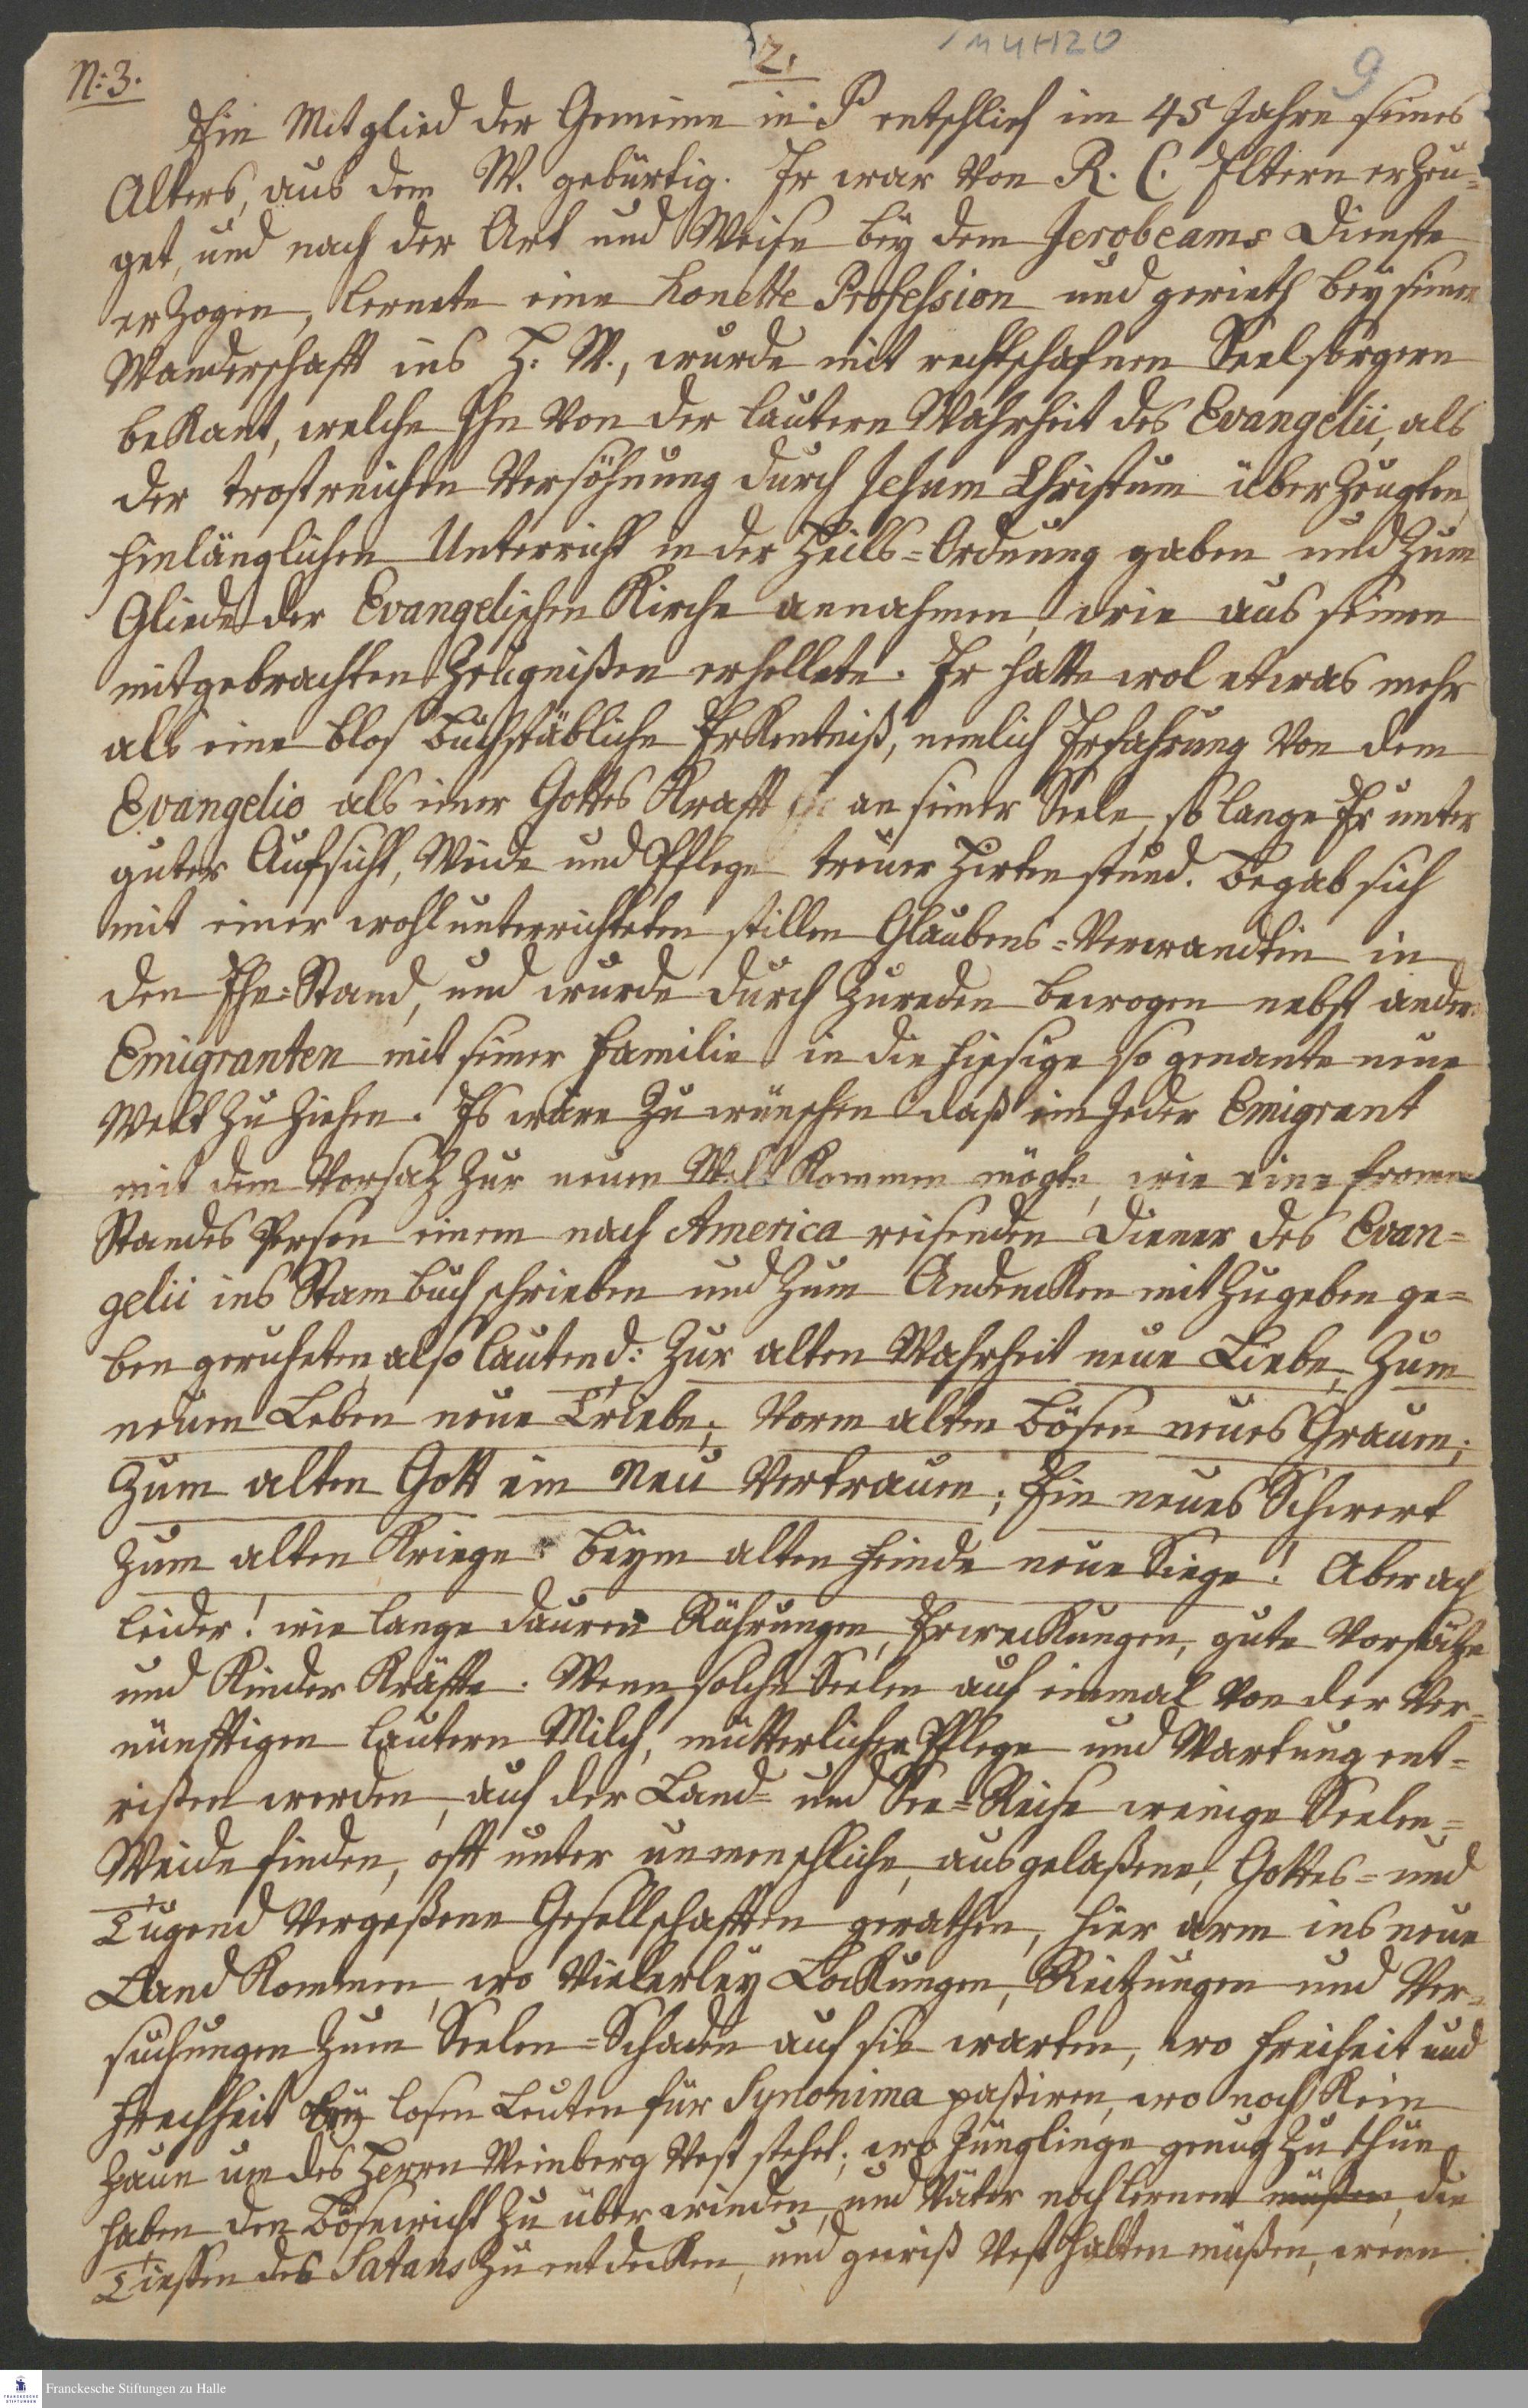 N: 3.
2.
14H20
9
Ein Mitglied der Gemeine in P entschlief im 45 Jahre seines
Alters, aus dem W. gebürtig. Er war von R. C. Eltern erzeu-
get, und nach der Art und Weise bey dem Jerobeams Dienste
erzogen, lernete eine honette Profession und gerieth bey seiner
Wanderschafft ins H. W., wurde mit rechtschafnen Seelsorgern
bekant, welche Ihn von der lautern Wahrheit des Evangelii, als
der trostreichen Versöhnung durch Jesum Christum überzeugten,
hinlänglichen Unterricht in der Heils-Ordnung gaben und zum
Gliede der Evangelischen Kirche annahmen, wie aus seinen
mitgebrachten Zeugnißen erhellete. Er hatte wol etwas mehr
als eine blos buchstäbliche Erkentniß, nemlich Erfahrung von dem
Evangelio als einer Gottes Krafft an seiner Seele, so lange Er unter
guter Aufsicht, Weide und Pflege treuer Hirten stund. Begab sich
mit einer wohlunterrichteten stillen Glaubens-Verwandtin in
den Ehe-Stand, und wurde durch Zureden bewogen nebst andern
Emigranten mit seiner Familie in die hiesige so genante neue
Welt zu ziehen. Es wäre zu wünschen daß ein jeder Emigrant
mit dem Vorsatz zur neuen Welt kommen mögte, wie eine fromme
Standes Person einem nach America reisenden Diener des Evan-
gelii ins Stambuch schrieben und zum Andencken mitzugeben ge-
ben geruheten, also lautend: Zur alten Wahrheit neue Liebe, Zum
neuen Leben neue Triebe; Vorm alten Bösen neues Grauen;
Zum alten Gott ein neu Vertrauen; Ein neues Schwert
zum alten Kriege. Beym alten Feinde neue Siege! Aber ach
leider! wie lange dauren Rührungen, Erweckungen, gute Vorsätze
und Kinder Kräffte. Wenn solche Seelen auf einmal von der Ver-
nünfftigen lautern Milch, mütterlicher Pflege und Wartung ent-
rißen werden, auf der Land- und See-Reise wenige Seelen-
Weide finden, oft unter unmenschliche, ausgelaßene, Gottes- und
Tugend vergeßene Gesellschafften gerathen, hier arm ins neue
Land kommen, wo vielerley Lockungen, Reitzungen und Ver-
suchungen zum Seelen-Schaden auf sie warten, wo Freiheit und
Frechheit bey losen Leuten für Synonima passiren, wo noch kein
Zaun um des Herrn Weinberg vest stehet; wo Jünglinge genug zu thun
haben den Bösewicht zu überwinden, und Väter noch lernen müßen, die
Tieffen des Satans zu entdecken, und gewiß vest halten müßen, wenn
Franckesche Stiftungen zu Halle